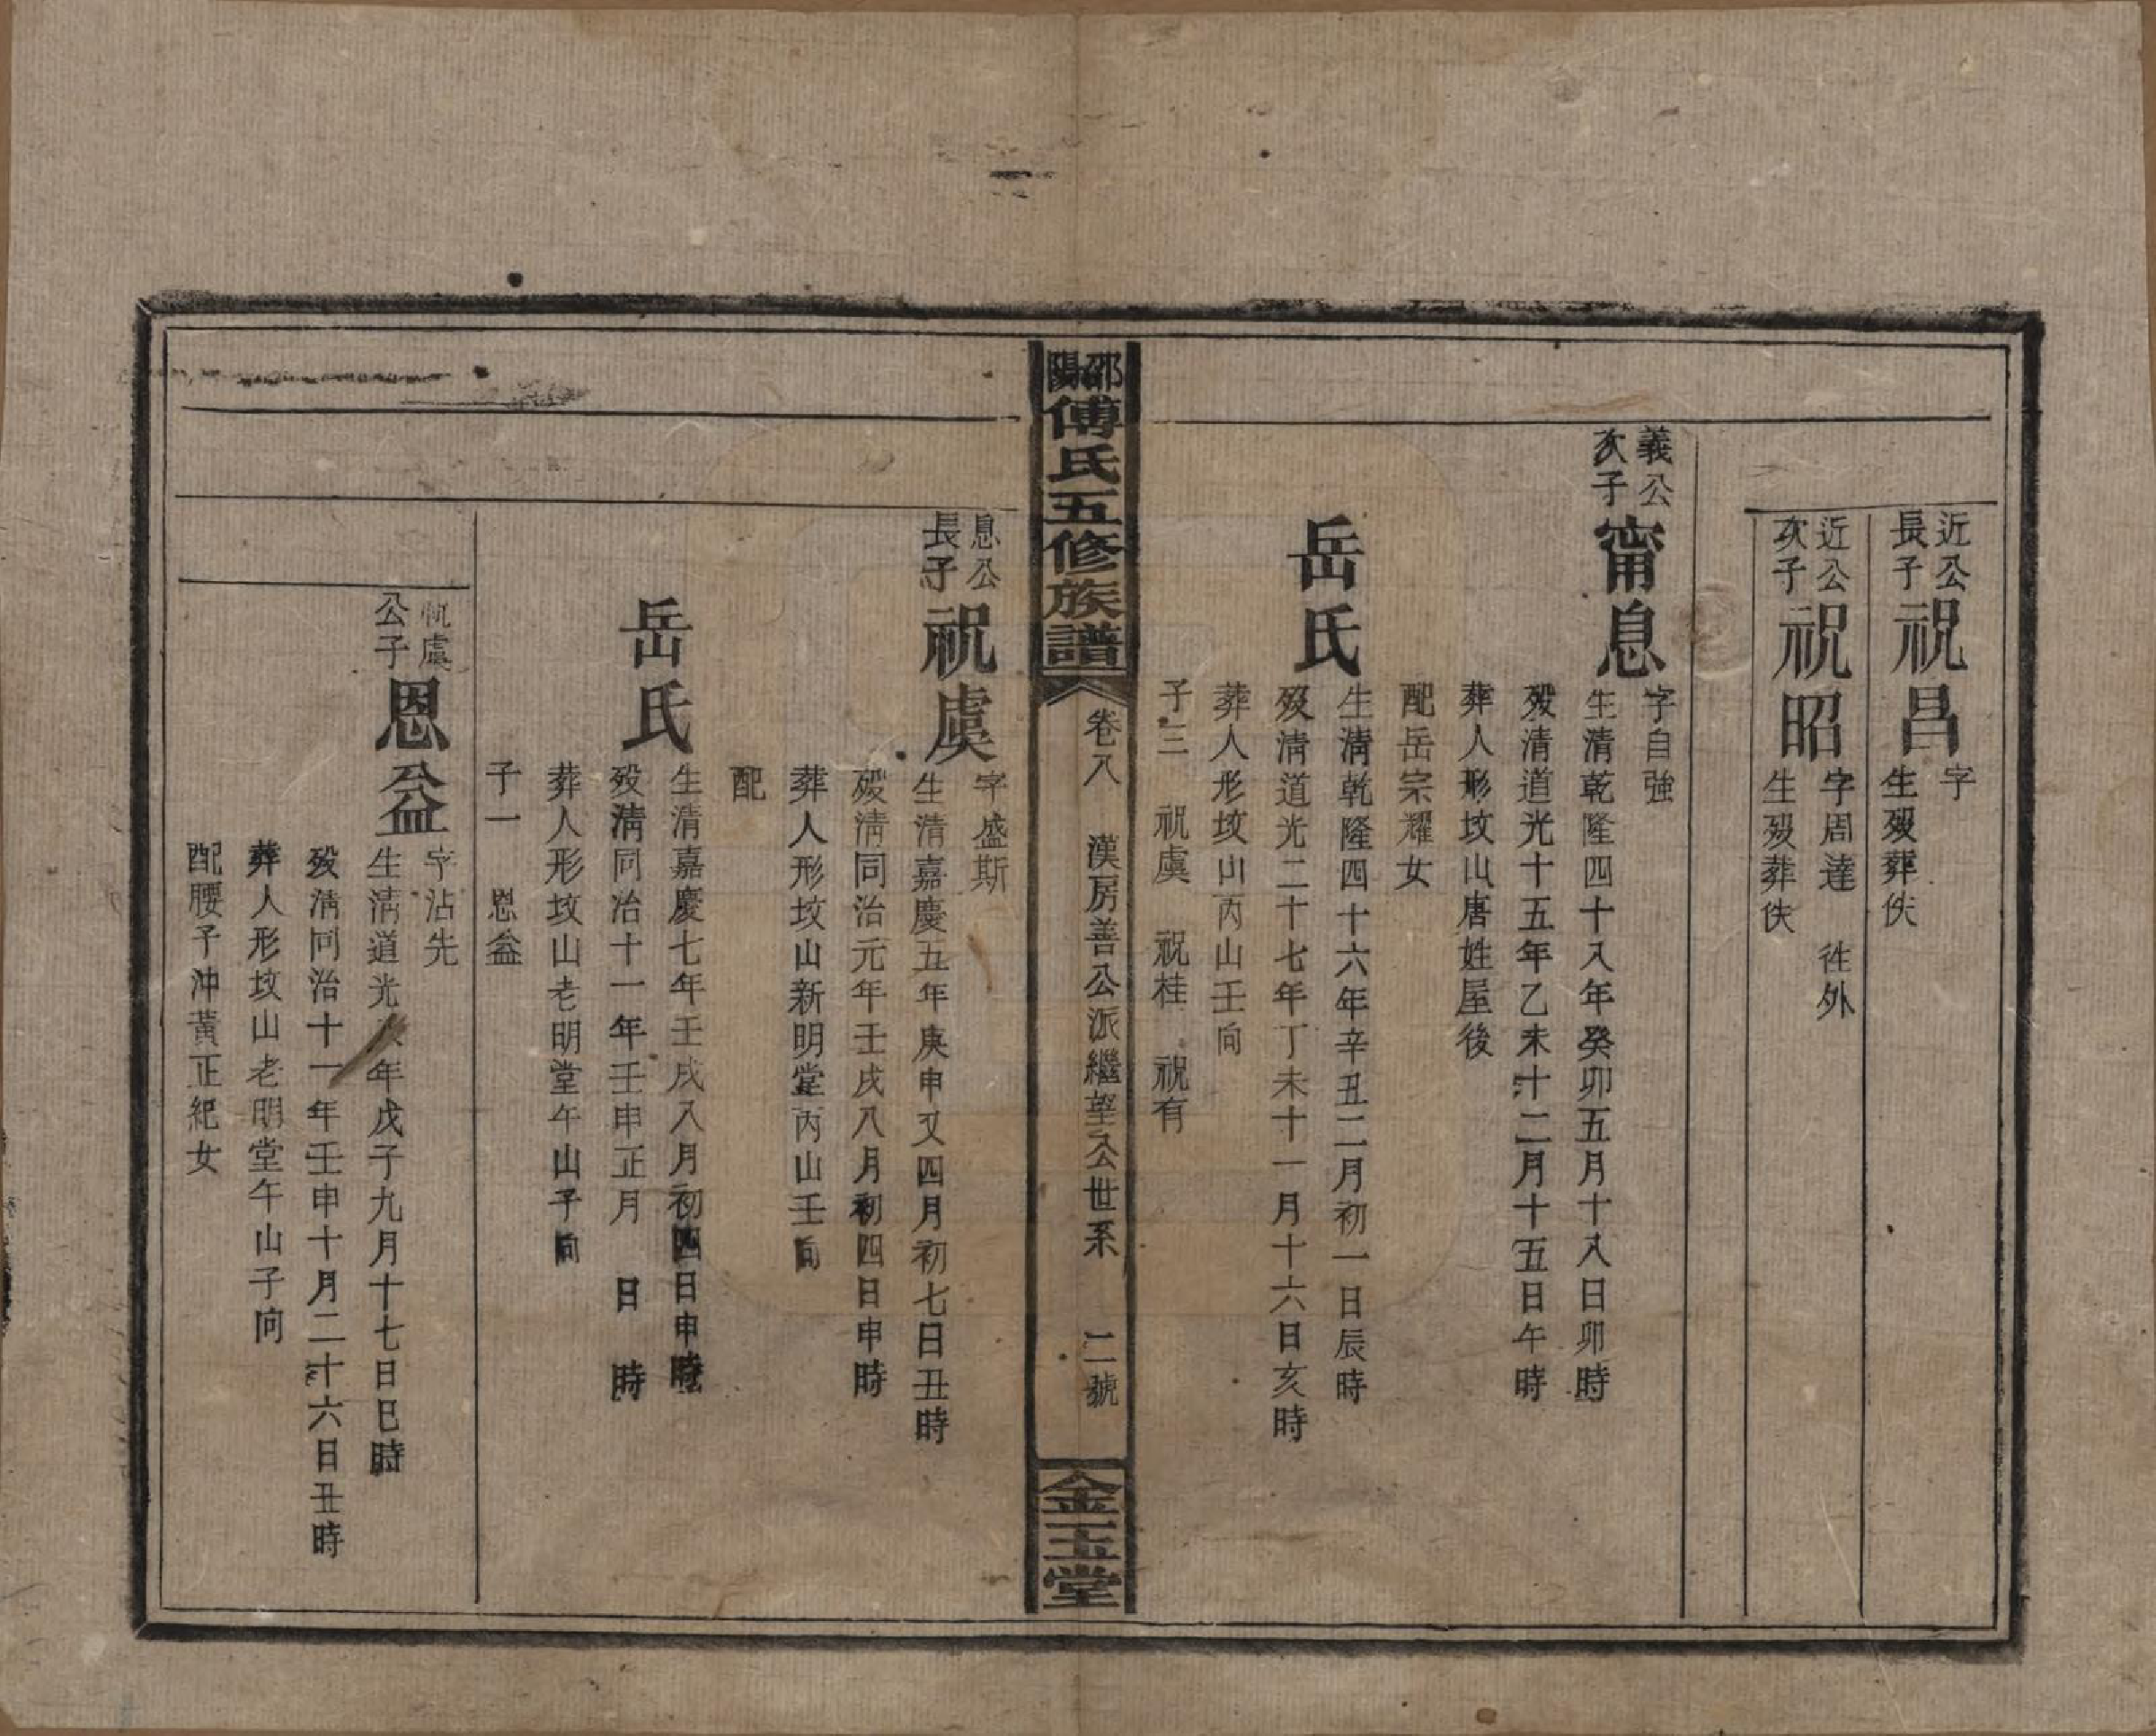 近公
長子
祝昌
字
生歿葬佚
近公
次子
祝昭
字周達 徃外
生歿葬佚
義公
次子
甯息
字自強
生清乾隆四十八年癸卯五月十八日卯時
歿清道光十五年乙未十二月十五日午時
葬人形坟山唐姓屋後
配岳宗耀女
岳氏
生清乾隆四十六年辛丑二月初一日辰時
歿清道光二十七年丁未十一月十六日亥時
葬人形坟山丙山壬向
子三 祝虞 祝桂 祝有
邵陽傅氏五修族譜
卷八 漢房善公派繼望公世系 二號
金玉堂
息公
長子
祝虞
字盛斯
生清嘉慶五年庚申又四月初七日丑時
歿清同治元年壬戌八月初四日申時
葬人形坟山新明堂丙山壬向
配
岳氏
生清嘉慶七年壬戌八月初四日申時
歿清同治十一年壬申正月 日 時
葬人形坟山老明堂午山子向
子一 恩益
祝虞
公子
恩益
字沾先
生清道光 年戊子九月十七日巳時
歿清同治十一年壬申十月二十六日丑時
葬人形坟山老明堂午山子向
配腰子沖黃正紀女